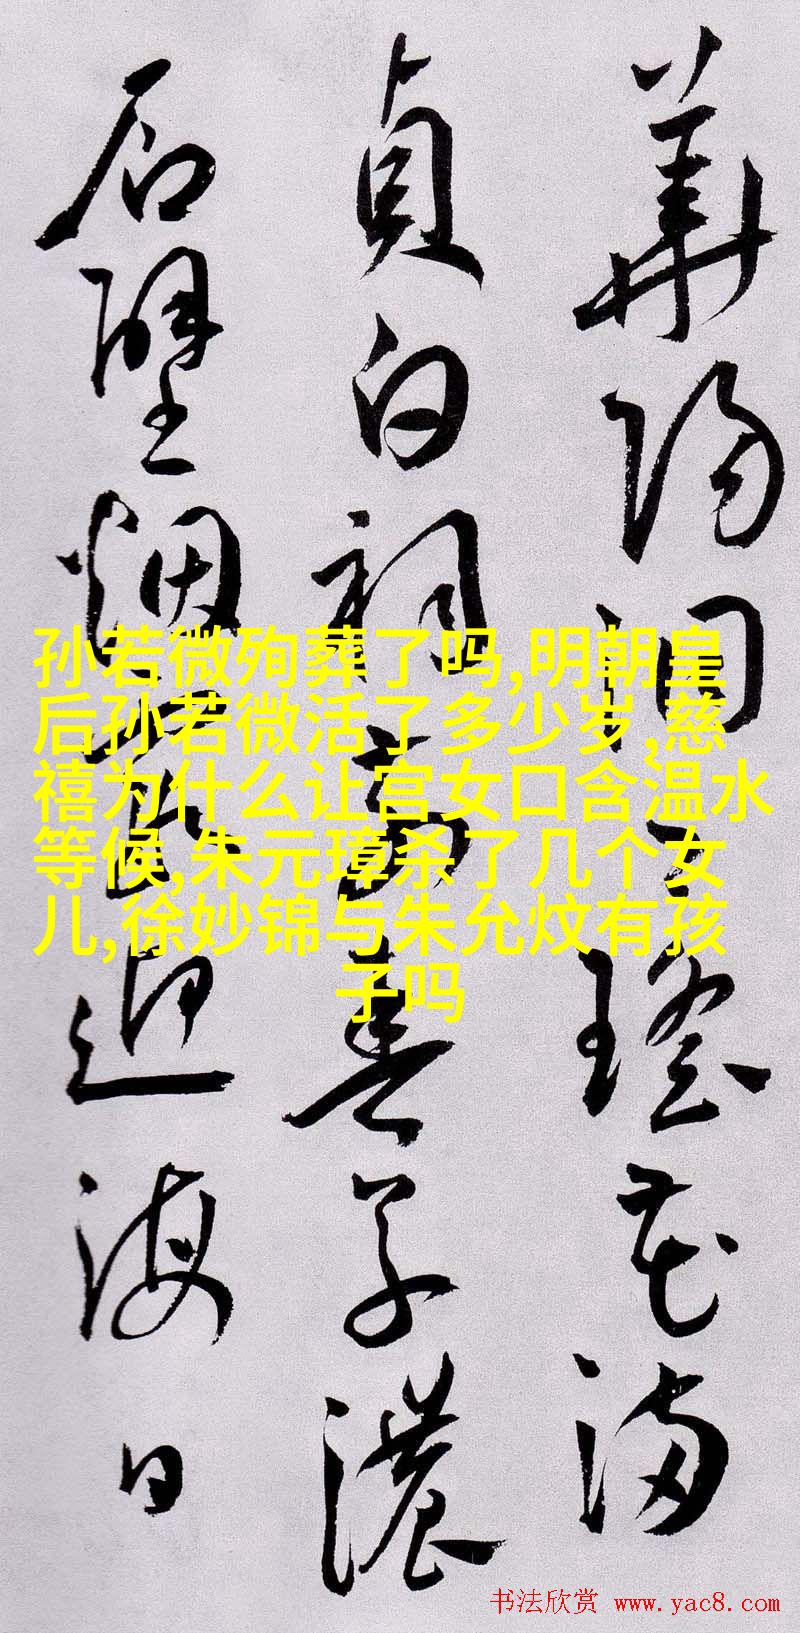 華陽洞瑤花滿
貞白祠春草濃
石壁烟霞迎海日
孙若微殉葬了吗,明朝皇
后孙若微活了多少岁,慈
禧为什么让宫女口含温水
等候,朱元璋杀了几个女
儿,徐妙锦与朱允炆有孩
子吗
书法欣赏 www.yac8.com